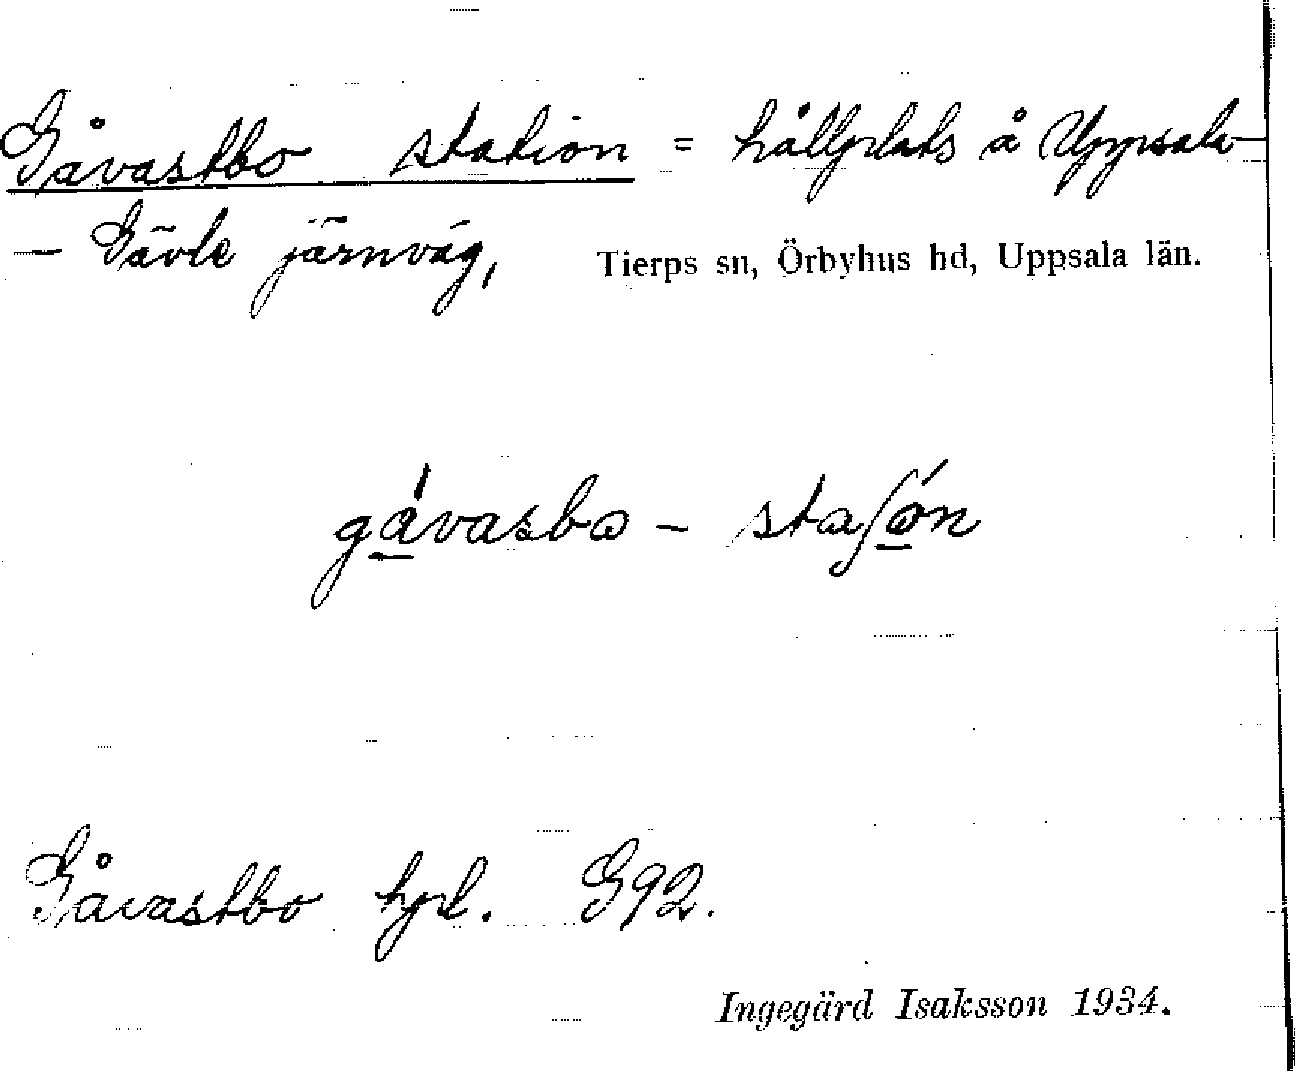 Gåvastbo station = hållplats å Uppsala-
- Gävle järnväg, Tierps sn, Örbyhus hd, Uppsala län.
gávasbo - staʃón
Gåvastbo hpl. G92.
Ingegärd Isaksson 1934.